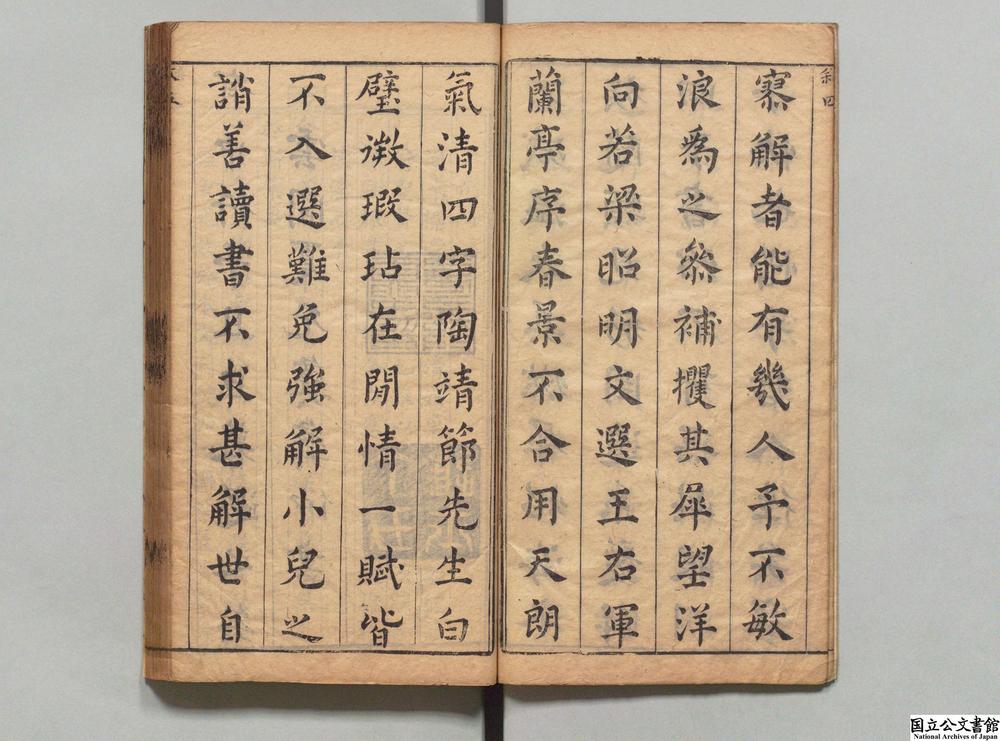 敘四
寡解者能有幾人予不敏
浪為之叅補攫其犀望洋
向若梁昭明文選王右軍
蘭亭序春景不合用天朗
氣清四字陶靖節先生白
璧微瑕玷在閒情一賦皆
不入選難免強解小兒之
誚善讀書不求甚解世自
国立公文書館
National Archives of Japan